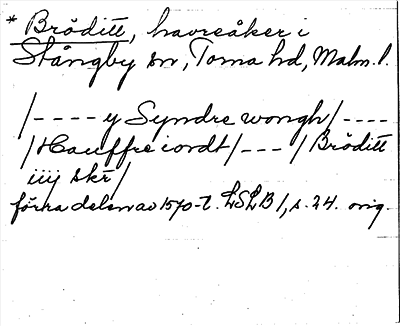 * Bröditt, havreåker i
Stångby sn, Torna hd, Malm. l.
/---- y Syndre wongh/----
/Hauffre iordt/---/ Bröditt
iiij skr/
förra delen av 1570-t. LSLB 1, s. 24. orig.